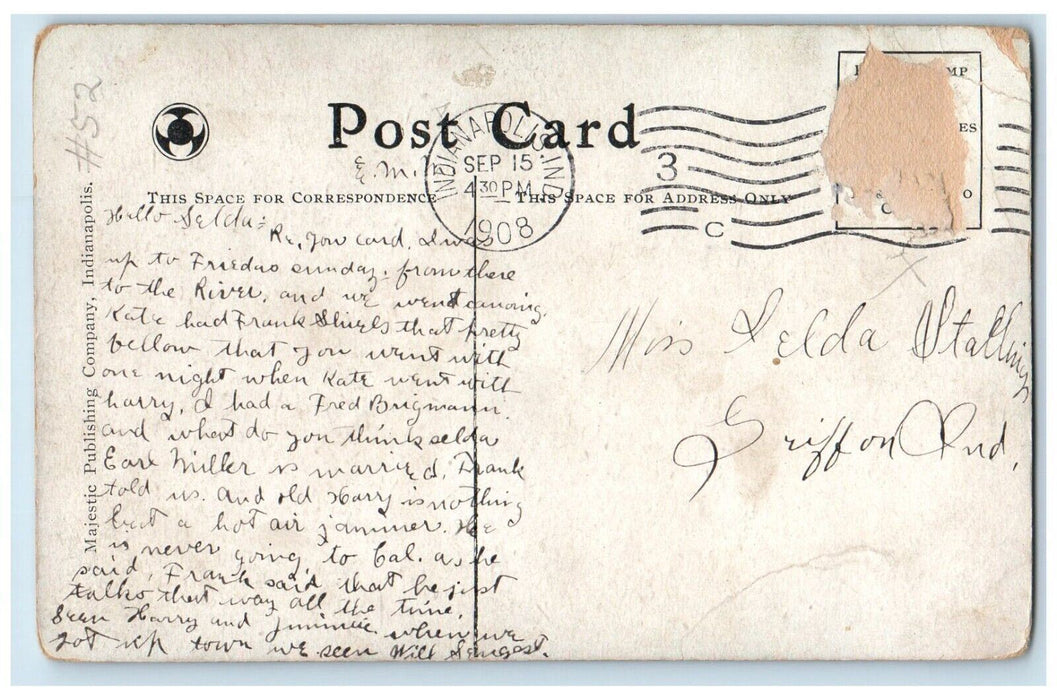 #52
Post Card
INDIANAPOLIS, IND.
SEP 15
4 30 PM
1908
3
C
E.M.
This Space for Correspondence
This Space for Address Only
Majestic Publishing Company, Indianapolis.
Hello Selda:
Re, your card, I was
up to Friedas sunday. from there
to the River, and we went canoing.
Kate had Frank Shiels that pretty
fellow that you went with
one night when Kate went with
harry, I had a Fred Brigmann.
and what do you think selda
Earl Miller is married, Frank
told us. and old Harry is nothing
but a hot air jammer. He
is never going to Cal. as he
said, Frank said that he just
talks that way all the time.
Seen Harry and Jimmie when we
got up town we seen Will
Miss Selda Stallings
Griffon Ind.